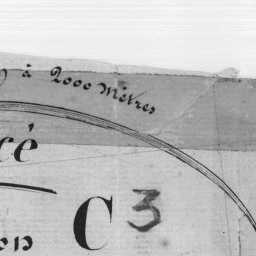 à 2000 Mètres
cé
C 3
on